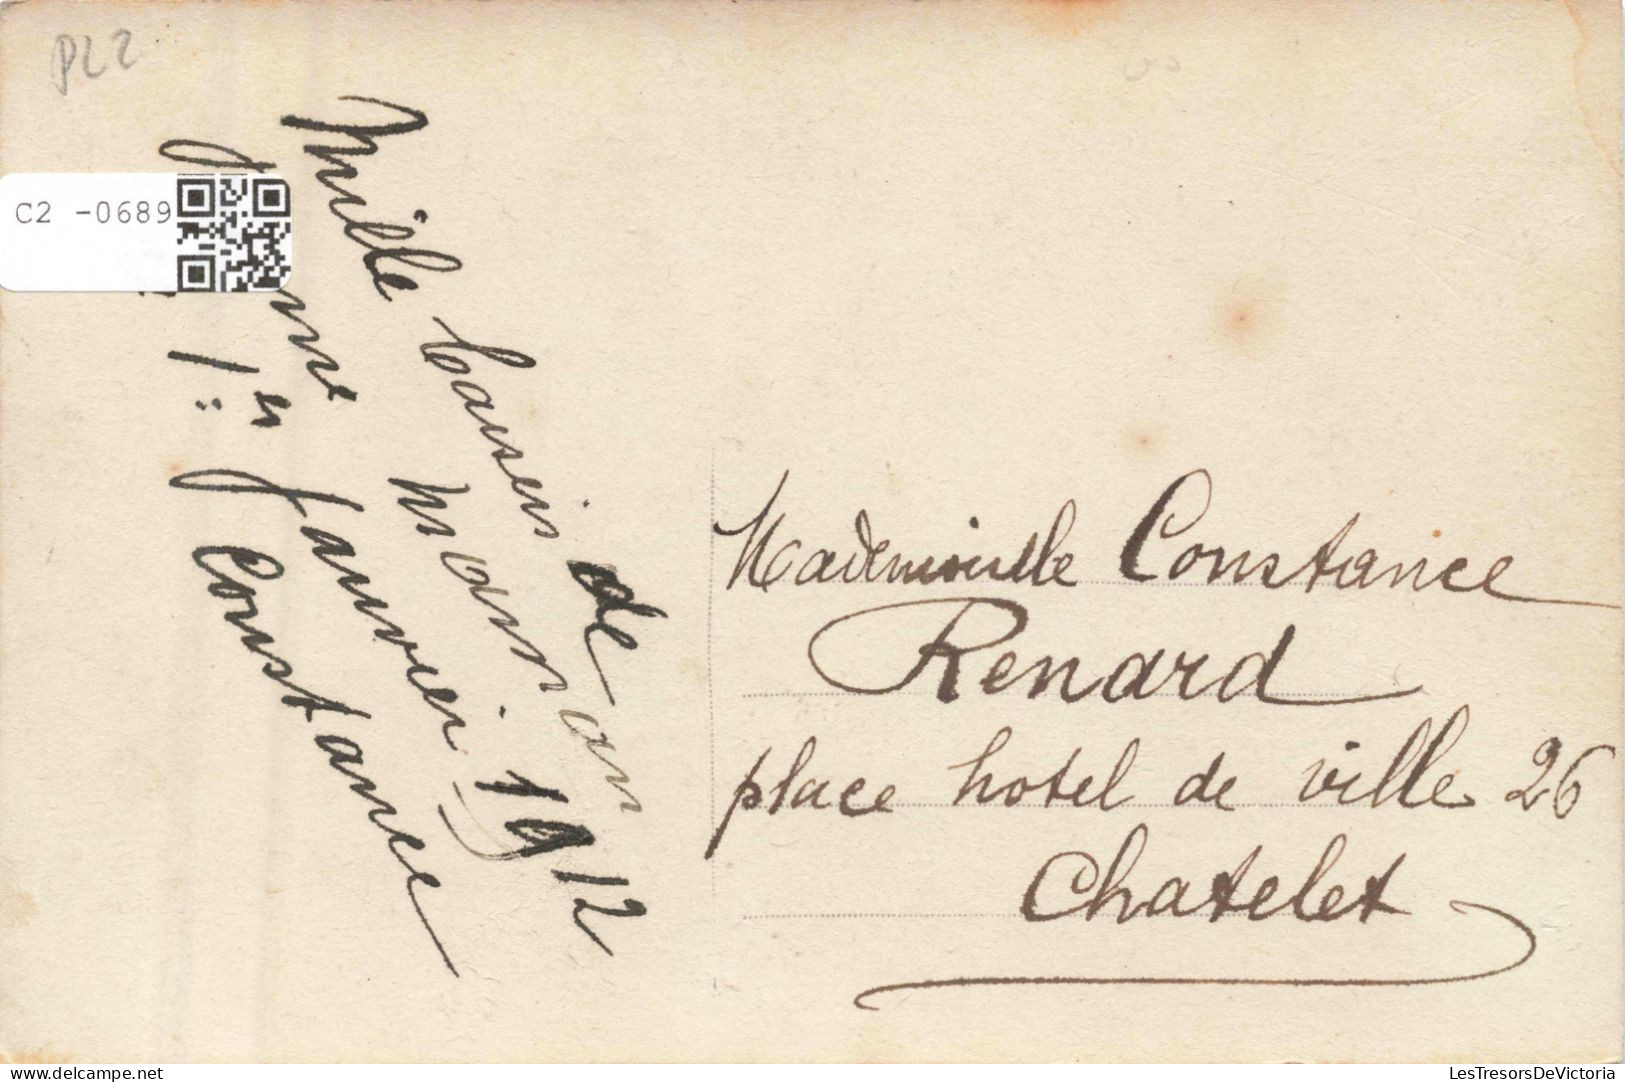 PL2
C2 -0689
Mille baisers de
maman
1er Janvier 1912
Constance
Mademoiselle Constance
Renard
place hotel de ville 26
Chatelet
LesTresorsDeVictoria